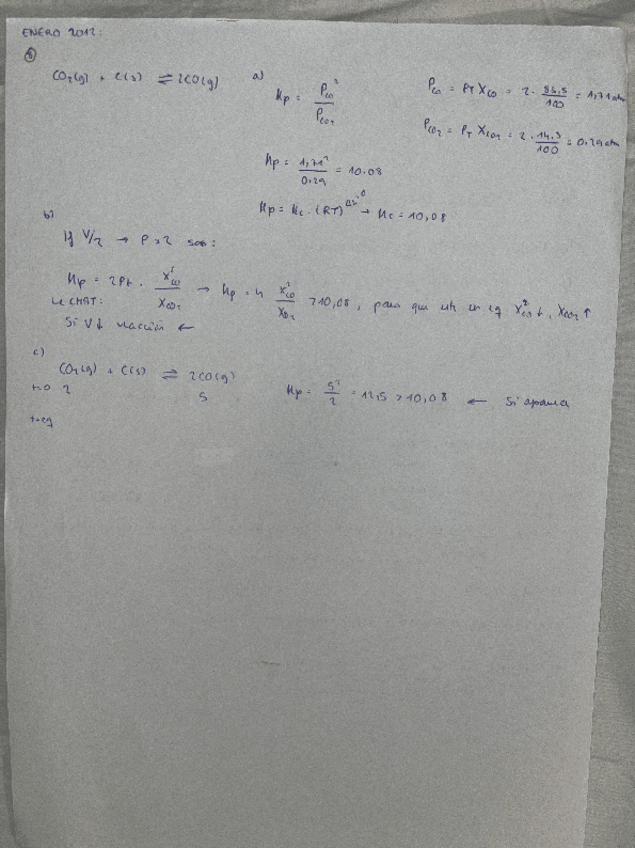 ENERO 2012:
8
CO₂(g) + C(s) ⇌ 2CO(g)
a) Kp = P_CO² / P_CO₂
P_CO = P_T X_CO = 2 · 85,5/100 = 1,71 atm
P_CO₂ = P_T X_CO₂ = 2 · 14.3/100 = 0.29 atm
Kp = 1,71² / 0.29 = 10.08
Kp = Kc · (RT)^Δn=0 → Kc = 10,08
b)
If V/2 → P x 2 :
Kp = 2Pt · X²_CO / X_CO₂ → Kp = 4 X²_CO / X_CO₂ > 10,08, para que esté en eq X²_CO ↓, X_CO₂ ↑
Le CHAT:
Si V↓ reacción ←
c)
CO₂(g) + C(s) ⇌ 2CO(g)
t=0 2 5
Kp = 5²/2 = 12,5 > 10,08 ← Si
t=eq